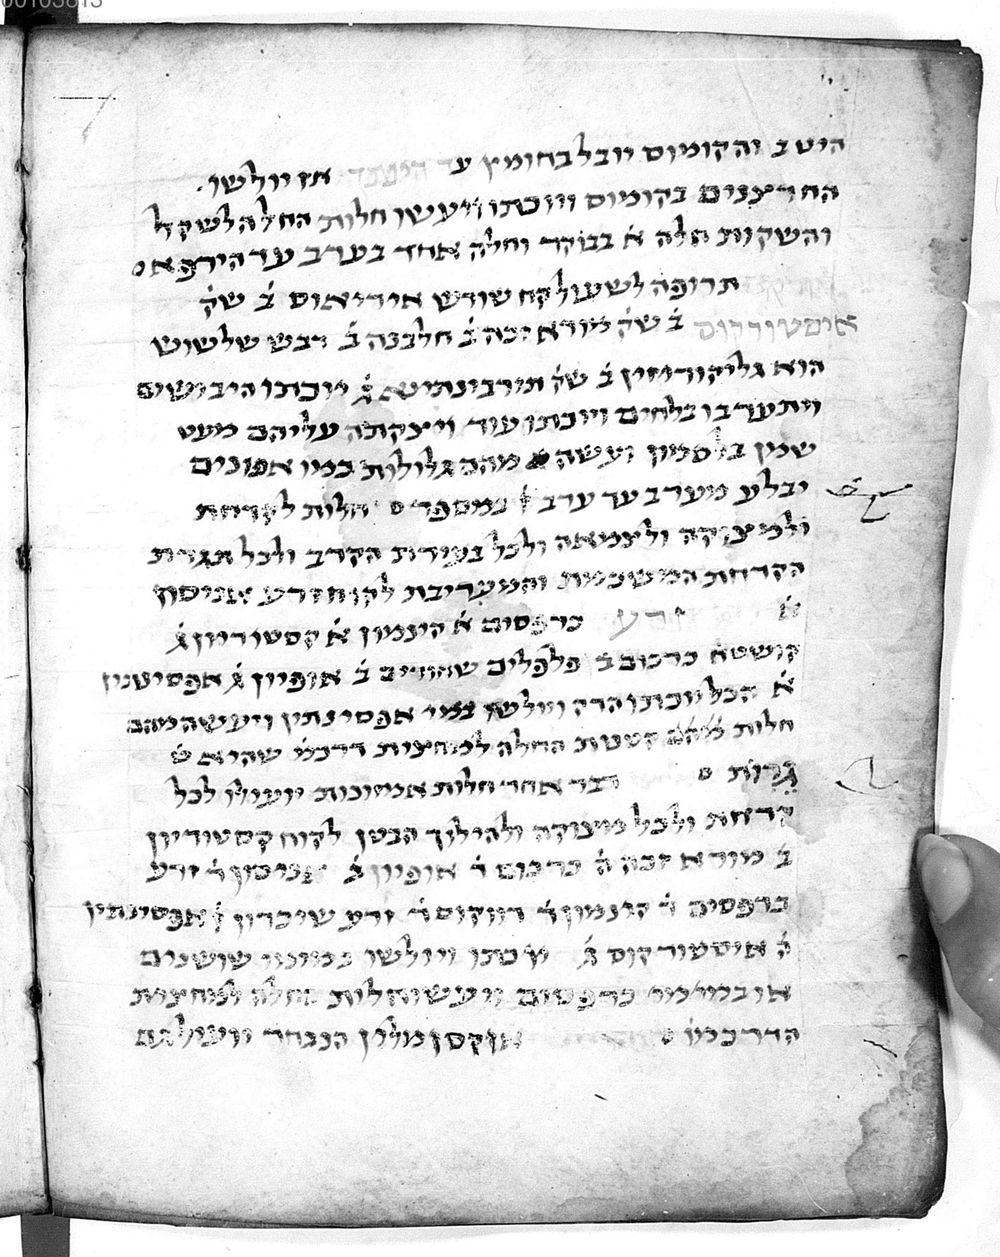 00103813
היטב והקומיום יובל בחומץ עד אז יולשו
החרצנים בקומיום ויוכתו ויעשו חלות החלה לשקל
והשקות חלה א בבוקר וחלה אחד בערב עד הירפאו
תרופה לשעול קח שורש איריאוס ב שק
איסטורקוס ב שק מורא זכה ב חלבנה ב דבש שלשוש
הוא גליקוריזין ב שק תירבינתינא ג יוכתו היבישים
ויתערבו בלחים ויוכתו עוד ויצקתה עליהם מעט
שמן בלסמון ועשה מהם גלולות כמו אפונים
יבלע מערב עד ערב במספר חלות לקדחת
ולמיצוקה ולצמאה ולכל בעירת הקרב ולכל תגרת
הקדחת המשכמת והמערבת לקוח זרע אניסון
א זרע כרפסים א הינמון א קסטוריון ג
קושטא כרכום ב פלפלים שחורים ב אופיון ג אפסינטין
א הכל יוכתו הדק ויולשו במי אפסינתין ויעשה מהם
חלות קטנות החלה למחצית דרכמו שהיא ט
גרות דבר אחר חלות יועילו לכל
קדחת ולכל מיצוקה ולהילוך הבטן לקוח קסטוריון
ב מורא זכה ה כרכום ד אופיון ב אניסון ד זרע
כרפסים ד קינמון ד דווקוס ד זרע שיכרון אפסינתין
ה איסטורקוס ג יוכתו ויולשו במימי שושנים
או במימי כרפסים ויעשו חלות החלה למחצית
הדרכמו אוקסומלין הנבחר יועיל גם